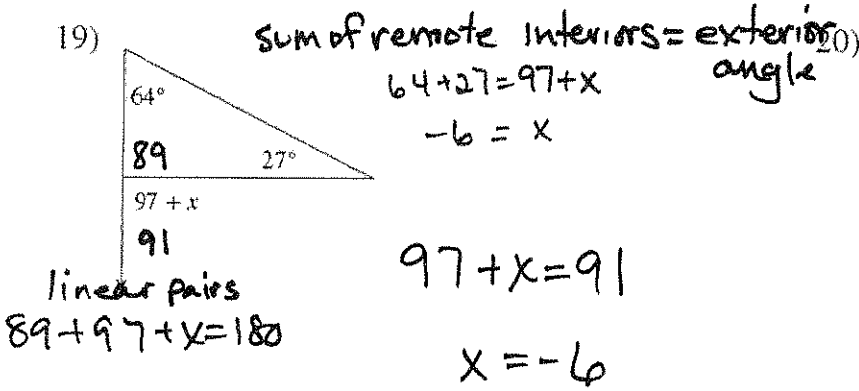 19)
sum of remote interiors = exterior angle
20)
64+27=97+x
-6 = x
64°
89
27°
97 + x
91
linear pairs
89+97+x=180
97+x=91
x=-6